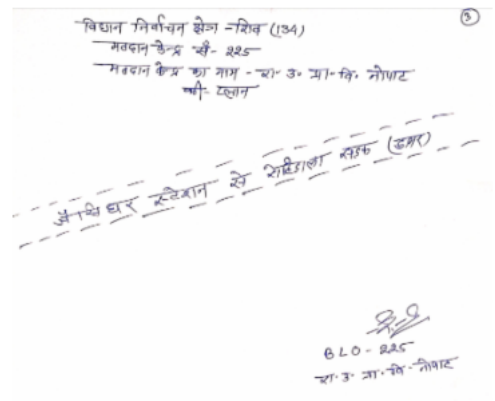 ③
विधान निर्वाचन क्षेत्र - शिव (134)
मतदान केन्द्र सं- 225
मतदान केन्द्र का नाम - रा. उ. प्रा. वि. नोपाट
प्लान
स्टेशन से सडक (डामर)
BLO - 225
रा. उ. प्रा. वि - नोपाट